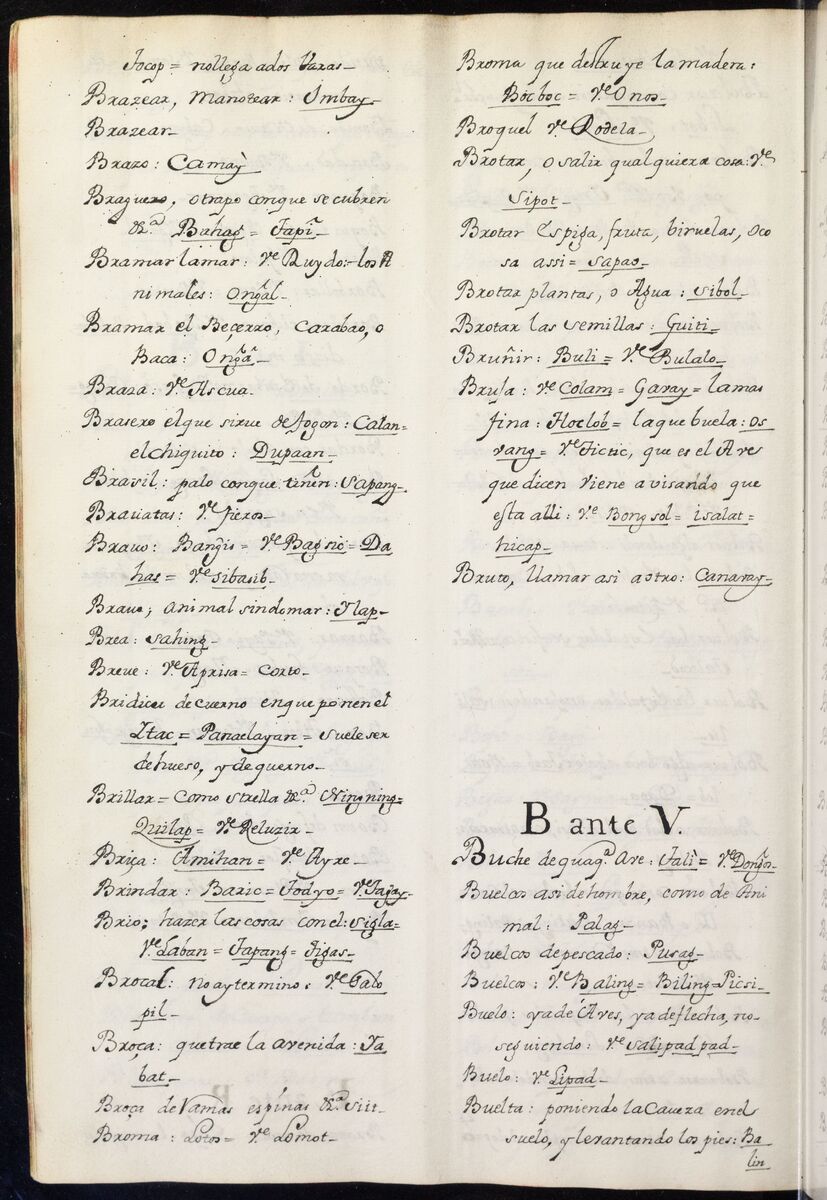 Tocop = no llega ados Varas_
Brazear, Manotear: Imbay_
Brazear_
Brazo: Camaỳ
Braguero, o trapo conque se cubren
&.ª Bahag = Tapi_
Bramar lamar: V.e Ruydo:- los A
nimales: Ongal_
Bramar el Beçerro, Carabao, o
Baca: Onga_
Braza: V.e Ascua_
Brasero el que sirue de fogon: Calan=
el chiquito: Dupaan_
Brasil: palo conque tiñen: Sapang_
Brauatas: V.e fieros_
Brauo: Bangis = V.e Bagsic = Da
has = V.e sibasib_
Brauo; animal sindomar: Ylap_
Brea: sahing_
Breue: V.e Aprisa = Corto_
Bridicu de cuerno enque ponen el
Ytac = Panaclayan = suele ser
de hueso, y de querno_
Brillar = Como strella &.ª Ningning=
Quilap = V.e Reluzir_
Briça: Amihan = V.e Ayre_
Brindar: Baric = Todyo = V.e Tagay_
Brio; hazer las cosas con el: sigla=
V.e Laban = Tapang = Tigas_
Brocal: no ay termino: V.e Palo
pil_
Broça: que trae la avenida: Ya
bat_
Broça de Ramas espinas &.ª siit_
Broma: Lotos = V.e Lomot_
Broma que destruye la madera:
Bócboc = V.e Onos_
Broquel V.e Rodela_
Brotar, o salir qualquiera cosa: V.e
Sipot_
Brotar Espiga, fruta, biruelas, o co
sa assi = sapao_
Brotar plantas, o Agua: sibol_
Brotar las semillas: Guiti_
Bruñir: Buli = V.e Bulalo_
Bruja: V.e Colam = Gavay = la mas
fina: Hoclob = la que buela: os
vang = V.e Tictic, que es el Ave
que dicen viene a visando que
esta alli: V.e Bongsol = isalat=
hicap_
Bruto, llamar asi a otro: Canavay_
B ante V.
Buche de quag.ª Ave: Tali = V.e Dongos_
Buelcos asi de hombre, como de Ani
mal: Palag_
Buelcos de pescado: Pusag_
Buelcos: V.e Baling = Biling = Picsi_
Buelo: ya de Aves, ya de flecha, no_
seguiendo: V.e salipad pad_
Buelo: V.e Lipad_
Buelta: poniendo la Caveza enel
suelo, y levantando los pies: Ba
lin